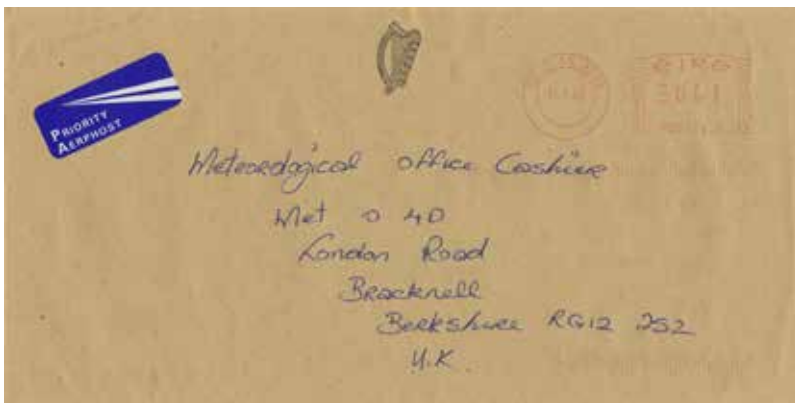 PRIORITY
AERPHOST
EIRE
Meteorological office Cashier
Met O 4D
London Road
Bracknell
Berkshire RG12 2SZ
U.K.